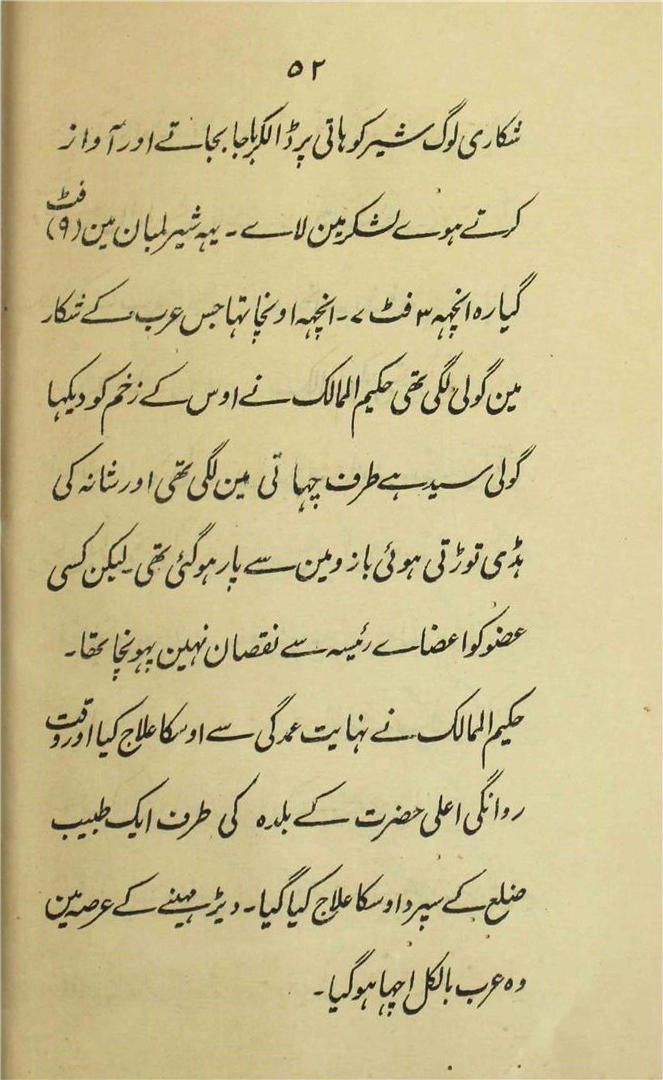 ۵۲
شکاری لوگ شیر کو هاتی پر ڈالکر باجا بجاتے اور آواز
کرتے ہوے لشکر مین لاے ۔ یہہ شیر لمبان مین (۹) فٹ
گیارہ انچہہ ۳ فٹ ۷ ۔ انچہہ اونچا تہا جس عرب کے شکار
مین گولی لگی تھی حکیم الممالک نے اوس کے زخم کو دیکہا
گولی سیدہے طرف چہاتی مین لگی تھی اور شانہ کی
ہڈی توڑتی ہوئی بازو مین سے پار ہوگئی تھی ۔ لیکن کسی
عضو کو اعضاے رئیسہ سے نقصان نہین پہونچا تھا ۔
حکیم الممالک نے نہایت عمدگی سے اوسکا علاج کیا اور وقت
روانگی اعلی حضرت کے بلدہ کی طرف ایک طبیب
ضلع کے سپرد اوسکا علاج کیا گیا ۔ دیڑہ مہینے کے عرصہ مین
وہ عرب بالکل اچہا ہوگیا ۔